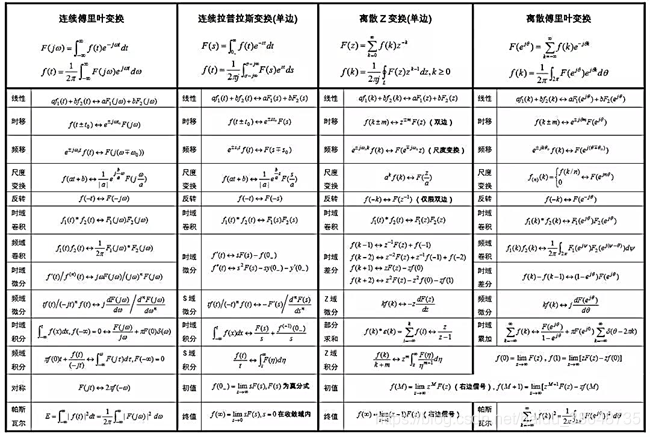 连续傅里叶变换
连续拉普拉斯变换(单边)
离散 Z 变换(单边)
离散傅里叶变换
F(jω)=∫_{-∞}^{∞} f(t)e^{-jωt}dt
F(s)=∫_{0_-}^{∞} f(t)e^{-st}dt
F(z)=∑_{k=0}^{∞} f(k)z^{-k}
F(e^{jθ})=∑_{k=-∞}^{∞} f(k)e^{-jθk}
f(t)=1/2π ∫_{-∞}^{∞} F(jω)e^{jωt}dω
f(t)=1/2πj ∫_{σ-j∞}^{σ+j∞} F(s)e^{st}ds
f(k)=1/2πj ∮_L F(z)z^{k-1}dz, k≥0
f(k)=1/2π ∫_{2π} F(e^{jθ})e^{jθk}dθ
线性 af₁(t)+bf₂(t)↔aF₁(jω)+bF₂(jω)
线性 af₁(t)+bf₂(t)↔aF₁(s)+bF₂(s)
线性 af₁(k)+bf₂(k)↔aF₁(z)+bF₂(z)
线性 af₁(k)+bf₂(k)↔aF₁(e^{jθ})+bF₂(e^{jθ})
时移 f(t±t₀)↔e^{±jωt₀}F(jω)
时移 f(t±t₀)↔e^{±st₀}F(s)
时移 f(k±m)↔z^{±m}F(z)(双边)
时移 f(k±m)↔e^{±jθm}F(e^{jθ})
频移 e^{±jω₀t}f(t)↔F(j(ω∓ω₀))
频移 e^{±s₀t}f(t)↔F(s∓s₀)
频移 e^{±jω₀k}f(k)↔F(e^{∓jω₀}z)(尺度变换)
频移 e^{±jkθ₀}f(k)↔F(e^{j(θ∓θ₀)})
尺度变换 f(at+b)↔1/|a| e^{j(b/a)ω}F(j ω/a)
尺度变换 f(at+b)↔1/|a| e^{(b/a)s}F(s/a)
尺度变换 a^k f(k)↔F(z/a)
尺度变换 f_{(n)}(k)={f(k/n) 0 ↔F(e^{jnθ})
反转 f(-t)↔F(-jω)
反转 f(-t)↔F(-s)
反转 f(-k)↔F(z^{-1})(仅限双边)
反转 f(-k)↔F(e^{-jθ})
时域卷积 f₁(t)*f₂(t)↔F₁(jω)F₂(jω)
时域卷积 f₁(t)*f₂(t)↔F₁(s)F₂(s)
时域卷积 f₁(t)*f₂(t)↔F₁(z)F₂(z)
时域卷积 f₁(k)*f₂(k)↔F₁(e^{jθ})F₂(e^{jθ})
频域卷积 f₁(t)f₂(t)↔1/2π F₁(jω)*F₂(jω)
时域微分 f'(t)↔sF(s)-f(0_-)
f''(t)↔s²F(s)-sy(0_-)-y'(0_-)
时域差分 f(k-1)↔z^{-1}F(z)+f(-1)
f(k-2)↔z^{-2}F(z)+z^{-1}f(-1)+f(-2)
f(k+1)↔zF(z)-zf(0)
f(k+2)↔z²F(z)-z²f(0)-zf(1)
频域卷积 f₁(k)f₂(k)↔1/2π ∫_{2π} F₁(e^{jψ})F₂(e^{j(θ-ψ)})dψ
时域微分 f'(t)/f^{(n)}(t)↔jωF(jω)/(jω)^n F(jω)
时域差分 f(k)-f(k-1)↔(1-e^{-jθ})F(e^{jθ})
频域微分 tf(t)/(-jt)^n f(t)↔j dF(jω)/dω / d^nF(jω)/dω^n
S 域微分 tf(t)/(-t)^n f(t)↔-F'(s)/ d^nF(s)/ds^n
Z 域微分 kf(k)↔-z dF(z)/dz
频域微分 kf(k)↔j dF(e^{jθ})/dθ
时域积分 ∫_{-∞}^{t} f(x)dx, f(-∞)=0↔F(jω)/jω+πF(0)δ(ω)
时域积分 ∫_{-∞}^{t} f(x)dx↔F(s)/s+f^{(-1)}(0_-)/s
部分求和 f(k)*ε(k)=∑_{i=-∞}^{k} f(i)↔z/(z-1)
时域累加 ∑_{k=-∞}^{∞} f(k)↔F(e^{jθ})/(1-e^{jθ})+πF(e^{j0})∑_{k=-∞}^{∞} δ(θ-2πk)
频域积分 πf(0)t+f(t)/(-jt)↔∫_{-∞}^{ω} F(jτ)dτ, F(-∞)=0
S 域积分 f(t)/t↔∫_s^∞ F(η)dη
Z 域积分 f(k)/(k+m)↔z^m∫_z^∞ F(η)/η^{m+1} dη
f(0)=lim F(z), f(1)=lim[zF(z)-zf(0)]
对称 F(jt)↔2πf(-ω)
初值 f(0_+)=lim sF(s), F(s)为真分式
初值 f(M)=lim z^M F(z)(右边信号), f(M+1)=lim[z^{M+1}F(z)-zf(M)
帕斯瓦尔 E=∫_{-∞}^{∞} |f(t)|²dt=1/2π ∫_{-∞}^{∞} |F(jω)|² dω
终值 f(∞)=lim_{s→0} sF(s), s=0 在收敛域内
终值 f(∞)=lim_{z→1}(z-1)F(z)(右边信号)
帕斯瓦尔 ∑_{k=-∞}^{∞} |f(k)|²=1/2π ∫_{2π} |F(e^{jθ})|²dθ